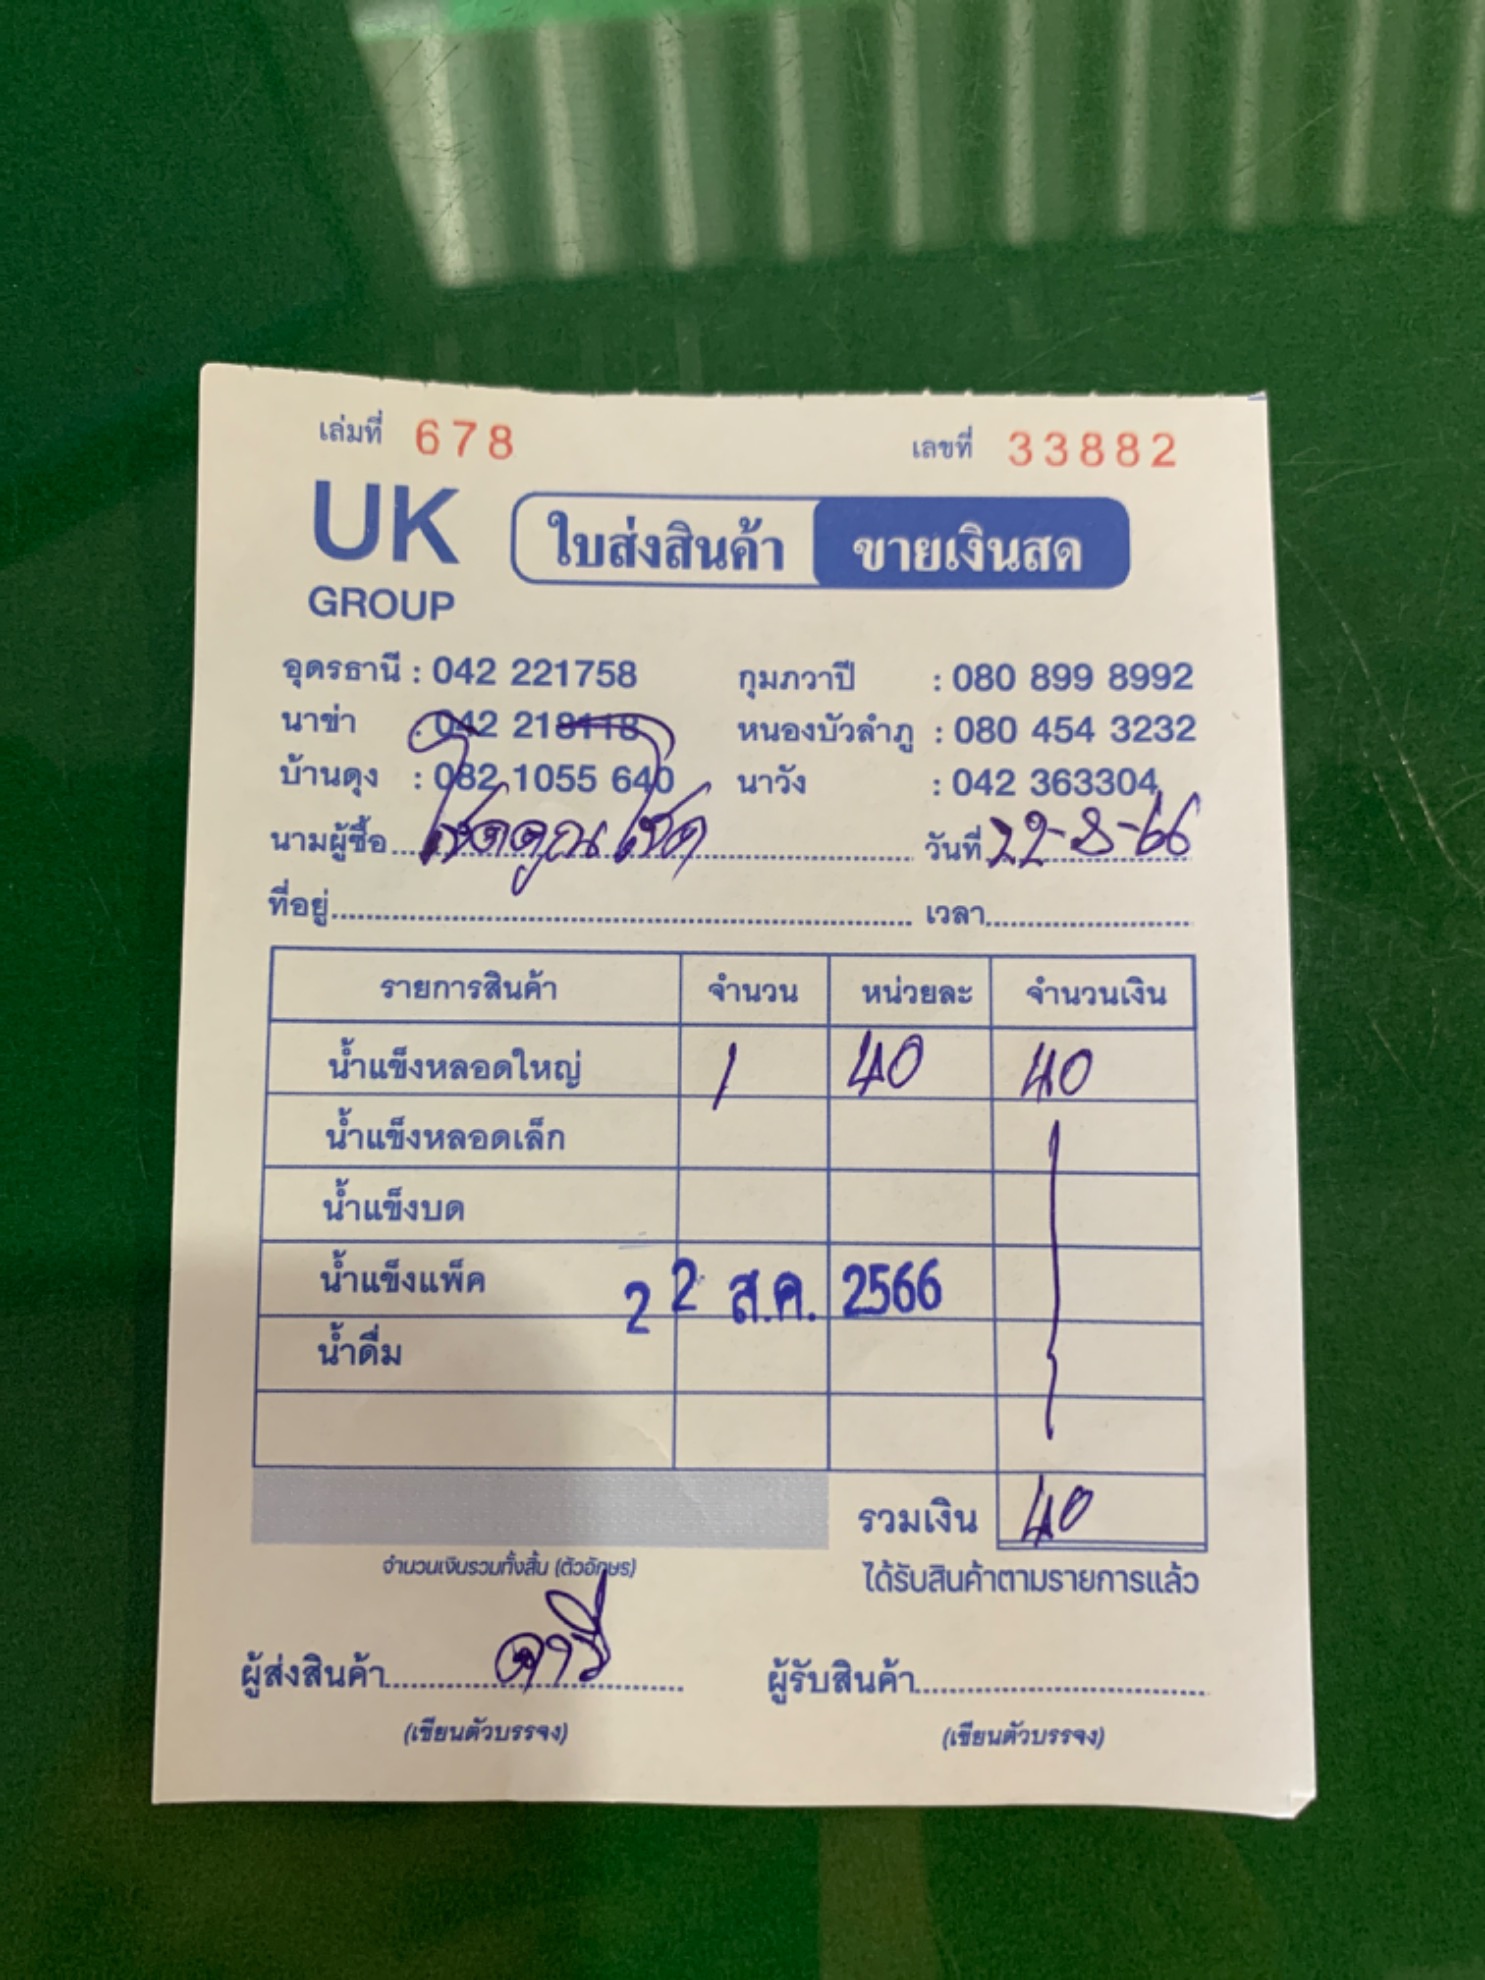 เล่มที่ 678 เลขที่ 33882
UK GROUP
ใบส่งสินค้า ขายเงินสด
อุดรธานี : 042 221758 กุมภวาปี : 080 899 8992
นาข่า : 042 218118 หนองบัวลำภู : 080 454 3232
บ้านดุง : 082 1055 640 นาวัง : 042 363304
นามผู้ซื้อ โชคคูณโชค วันที่ 22-8-66
ที่อยู่ เวลา
รายการสินค้า จำนวน หน่วยละ จำนวนเงิน
น้ำแข็งหลอดใหญ่ 1 40 40
น้ำแข็งหลอดเล็ก
น้ำแข็งบด
น้ำแข็งแพ็ค
22 ส.ค. 2566
น้ำดื่ม
รวมเงิน 40
จำนวนเงินรวมทั้งสิ้น (ตัวอักษร) ได้รับสินค้าตามรายการแล้ว
ผู้ส่งสินค้า ผู้รับสินค้า
(เขียนตัวบรรจง) (เขียนตัวบรรจง)